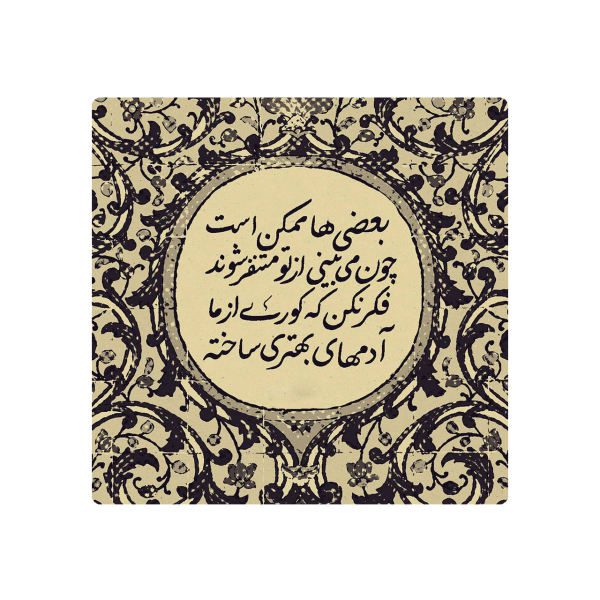 بعضی ها ممکن است
چون می بینی از تو متنفر شوند
فکر نکن که کوری از ما
آدمهای بهتری ساخته